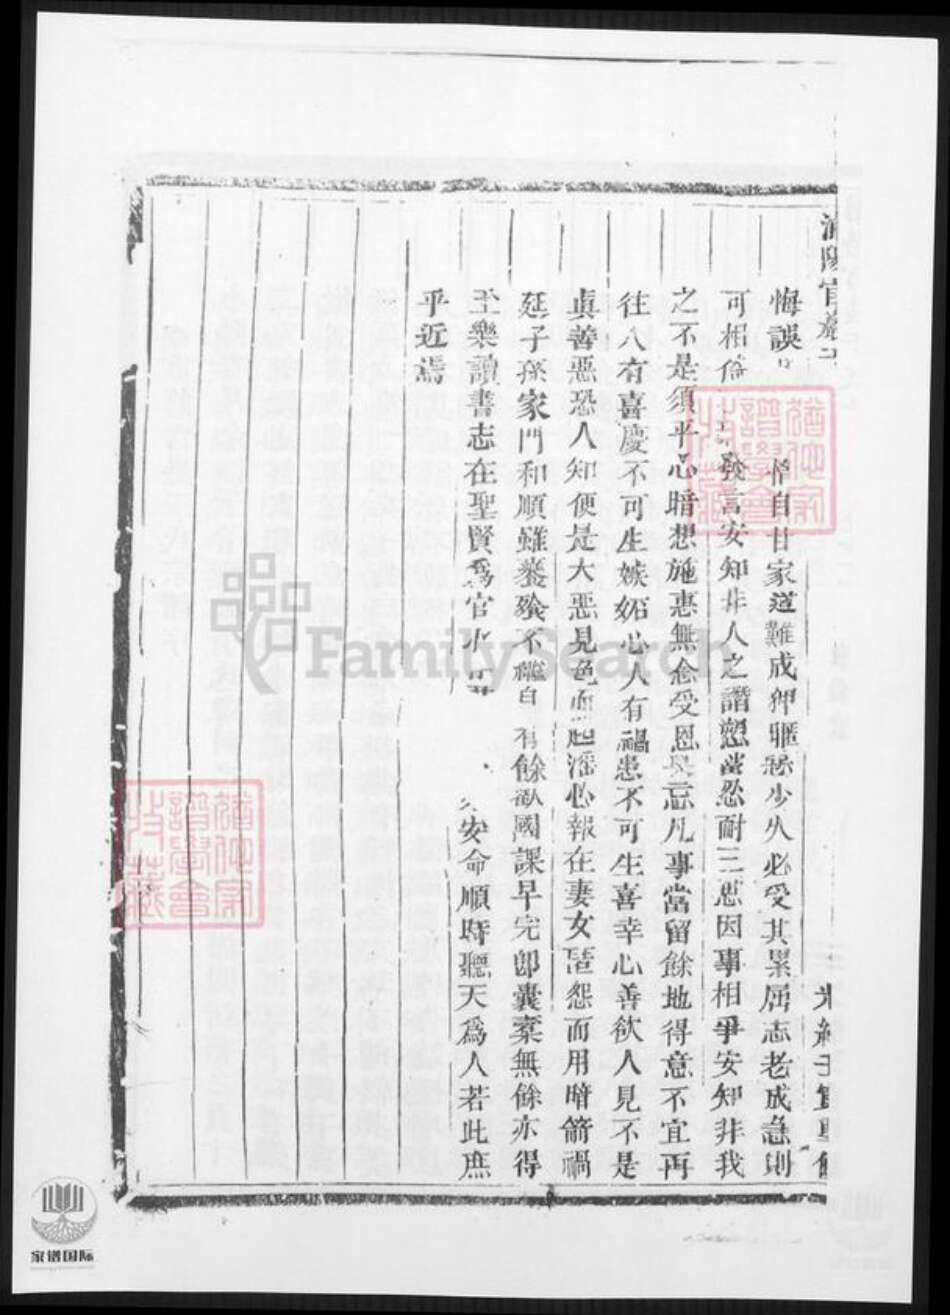 悔誤惰自甘家道難成狎暱惡少久必受其累屈志老成急則
可相倚發言安知非人之譖愬當忍耐三思因事相爭安知非我
之不是須平心暗想施惠無念受恩忘凡事當留餘地得意不宜再
往人有喜慶不可生嫉妬心人有禍患不可生喜幸心善欲人見不是
真善惡恐人知便是大惡見色而起淫心報在妻女匿怨而用暗箭禍
延子孫家門和順雖饔飧不繼自有餘歡國課早完即囊橐無餘亦得
至樂讀書志在聖賢為官心安命順時聽天為人若此庶
乎近焉
官
光緒子重
猶他家譜學會收藏
猶他家譜學會收藏
FamilySearch
家谱国际